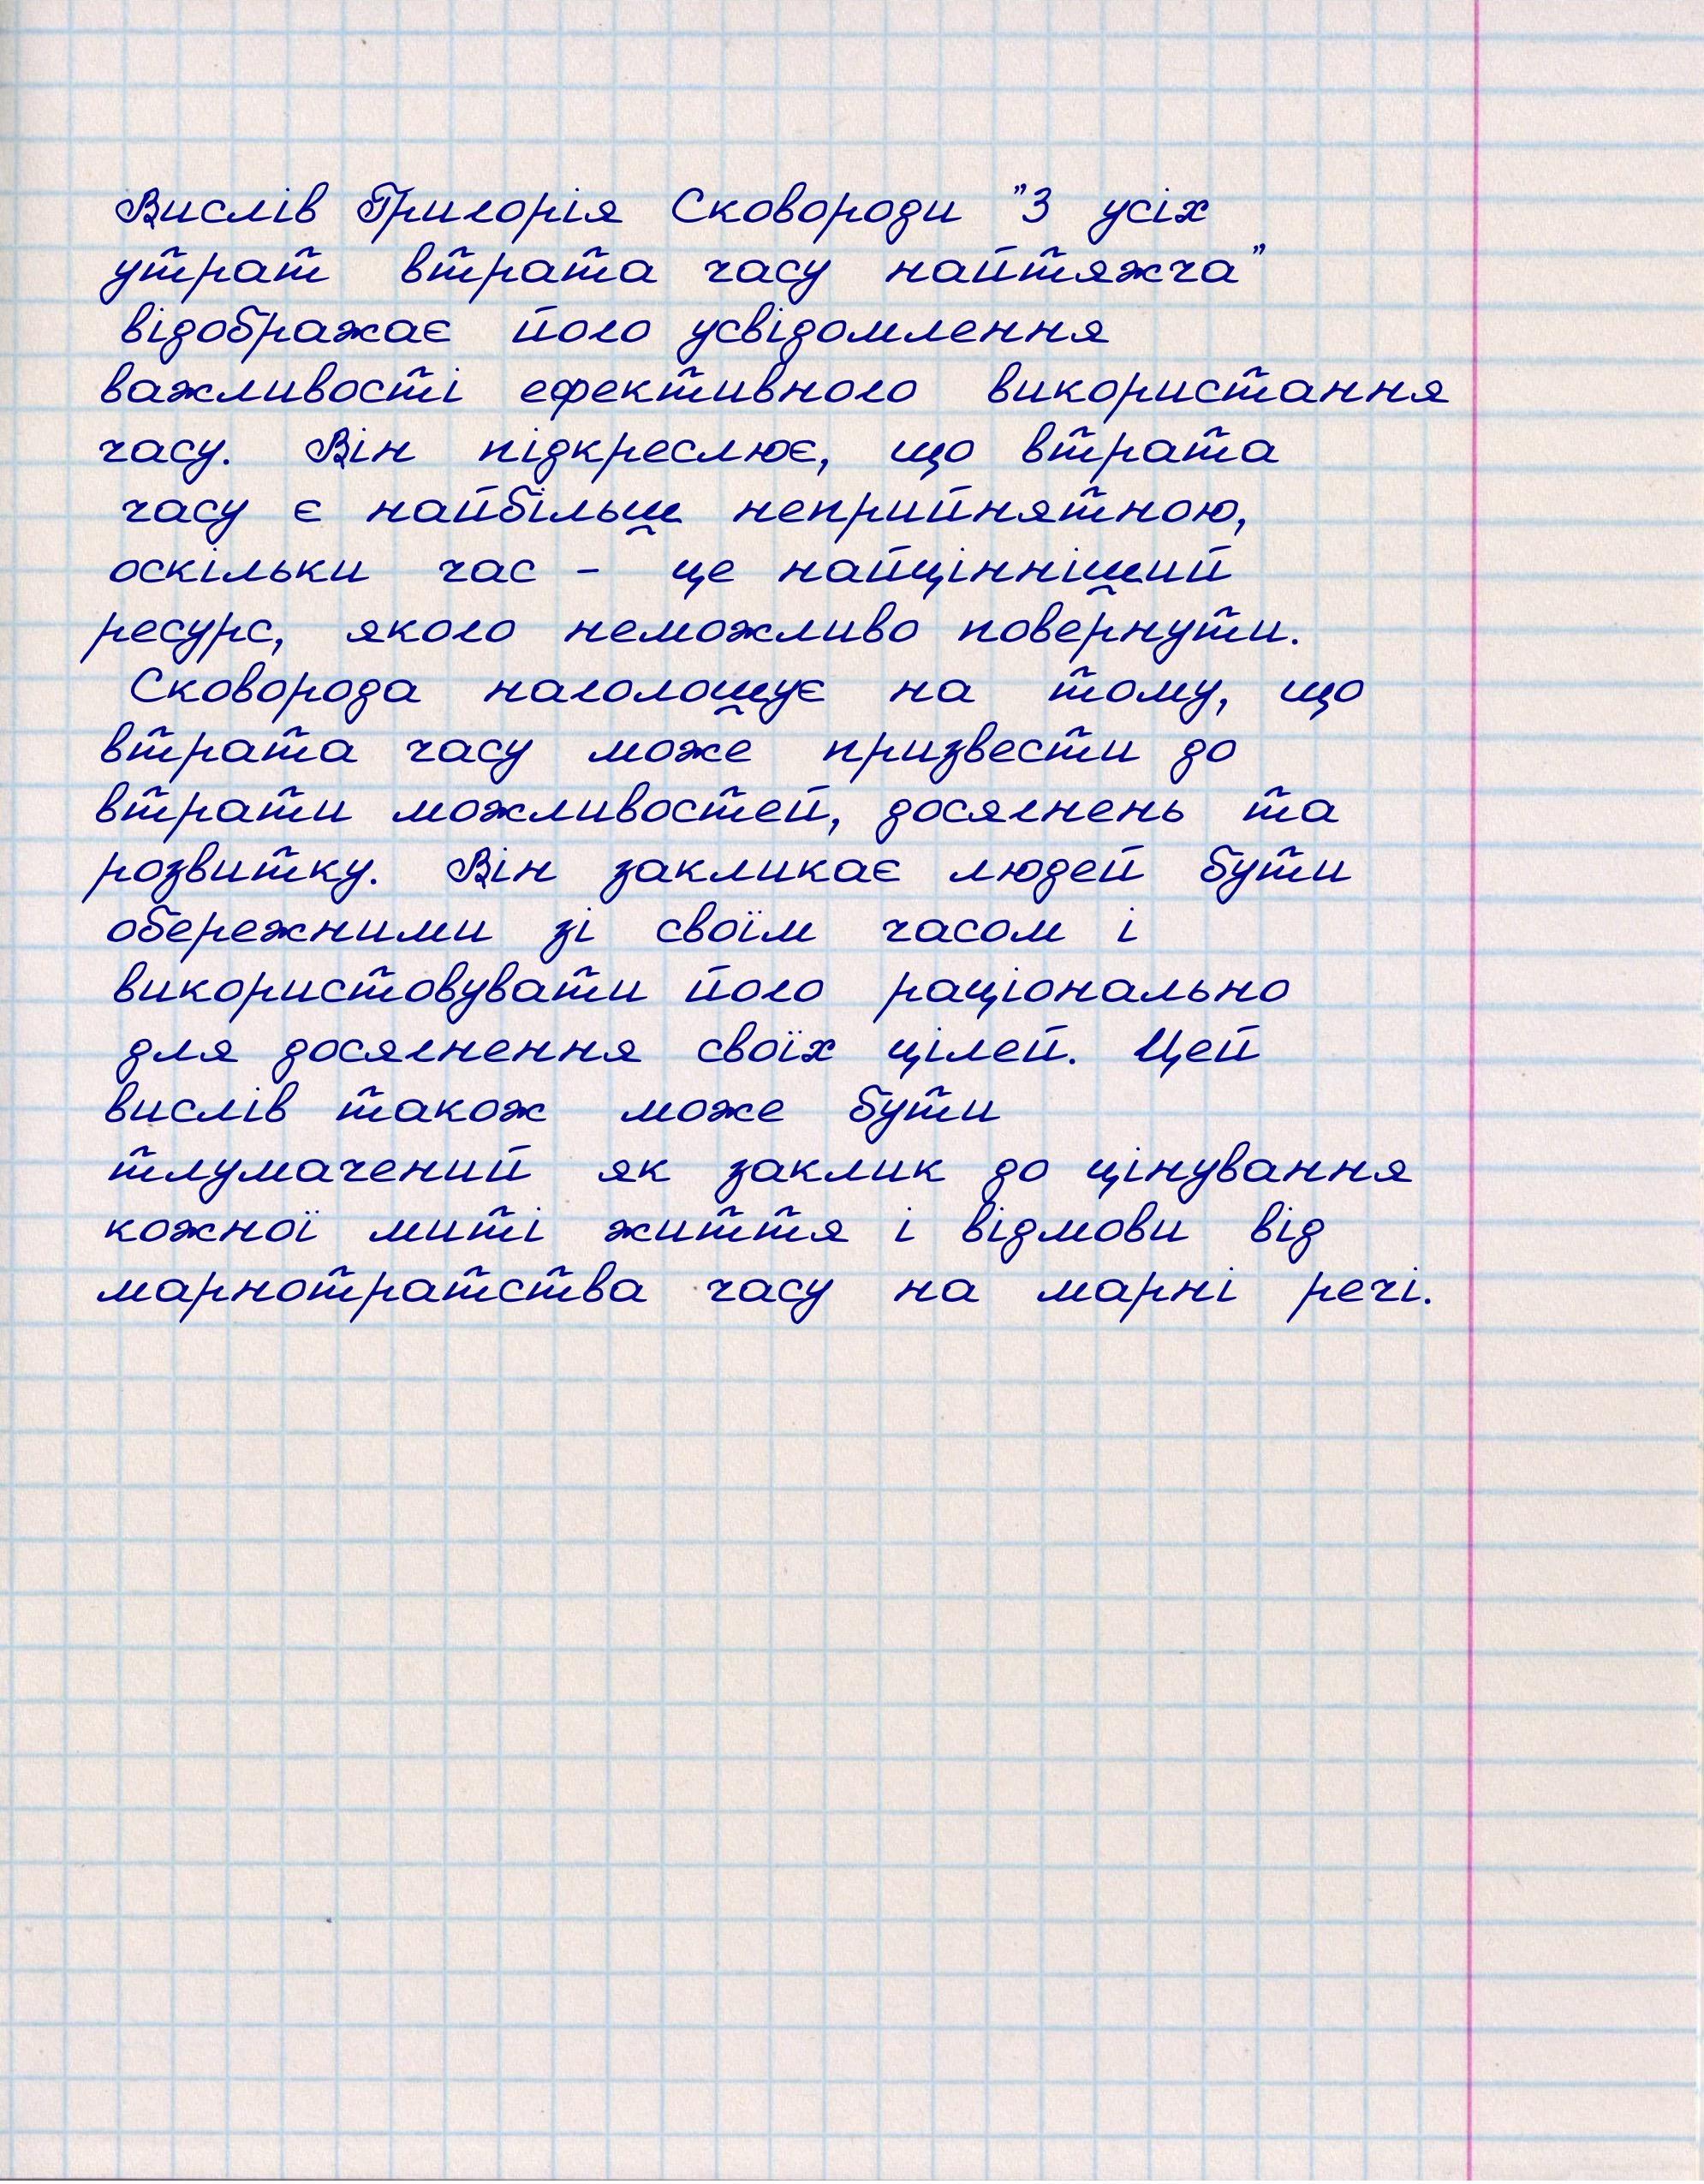 Вислів Григорія Сковороди "З усіх
утрат втрата часу найтяжча"
відображає його усвідомлення
важливості ефективного використання
часу. Він підкреслює, що втрата
часу є найбільш неприйнятною,
оскільки час - це найцінніший
ресурс, якого неможливо повернути.
Сковорода наголошує на тому, що
втрата часу може призвести до
втрати можливостей, досягнень та
розвитку. Він закликає людей бути
обережними зі своїм часом і
використовувати його раціонально
для досягнення своїх цілей. Цей
вислів також може бути
тлумачений як заклик до цінування
кожної миті життя і відмови від
марнотратства часу на марні речі.